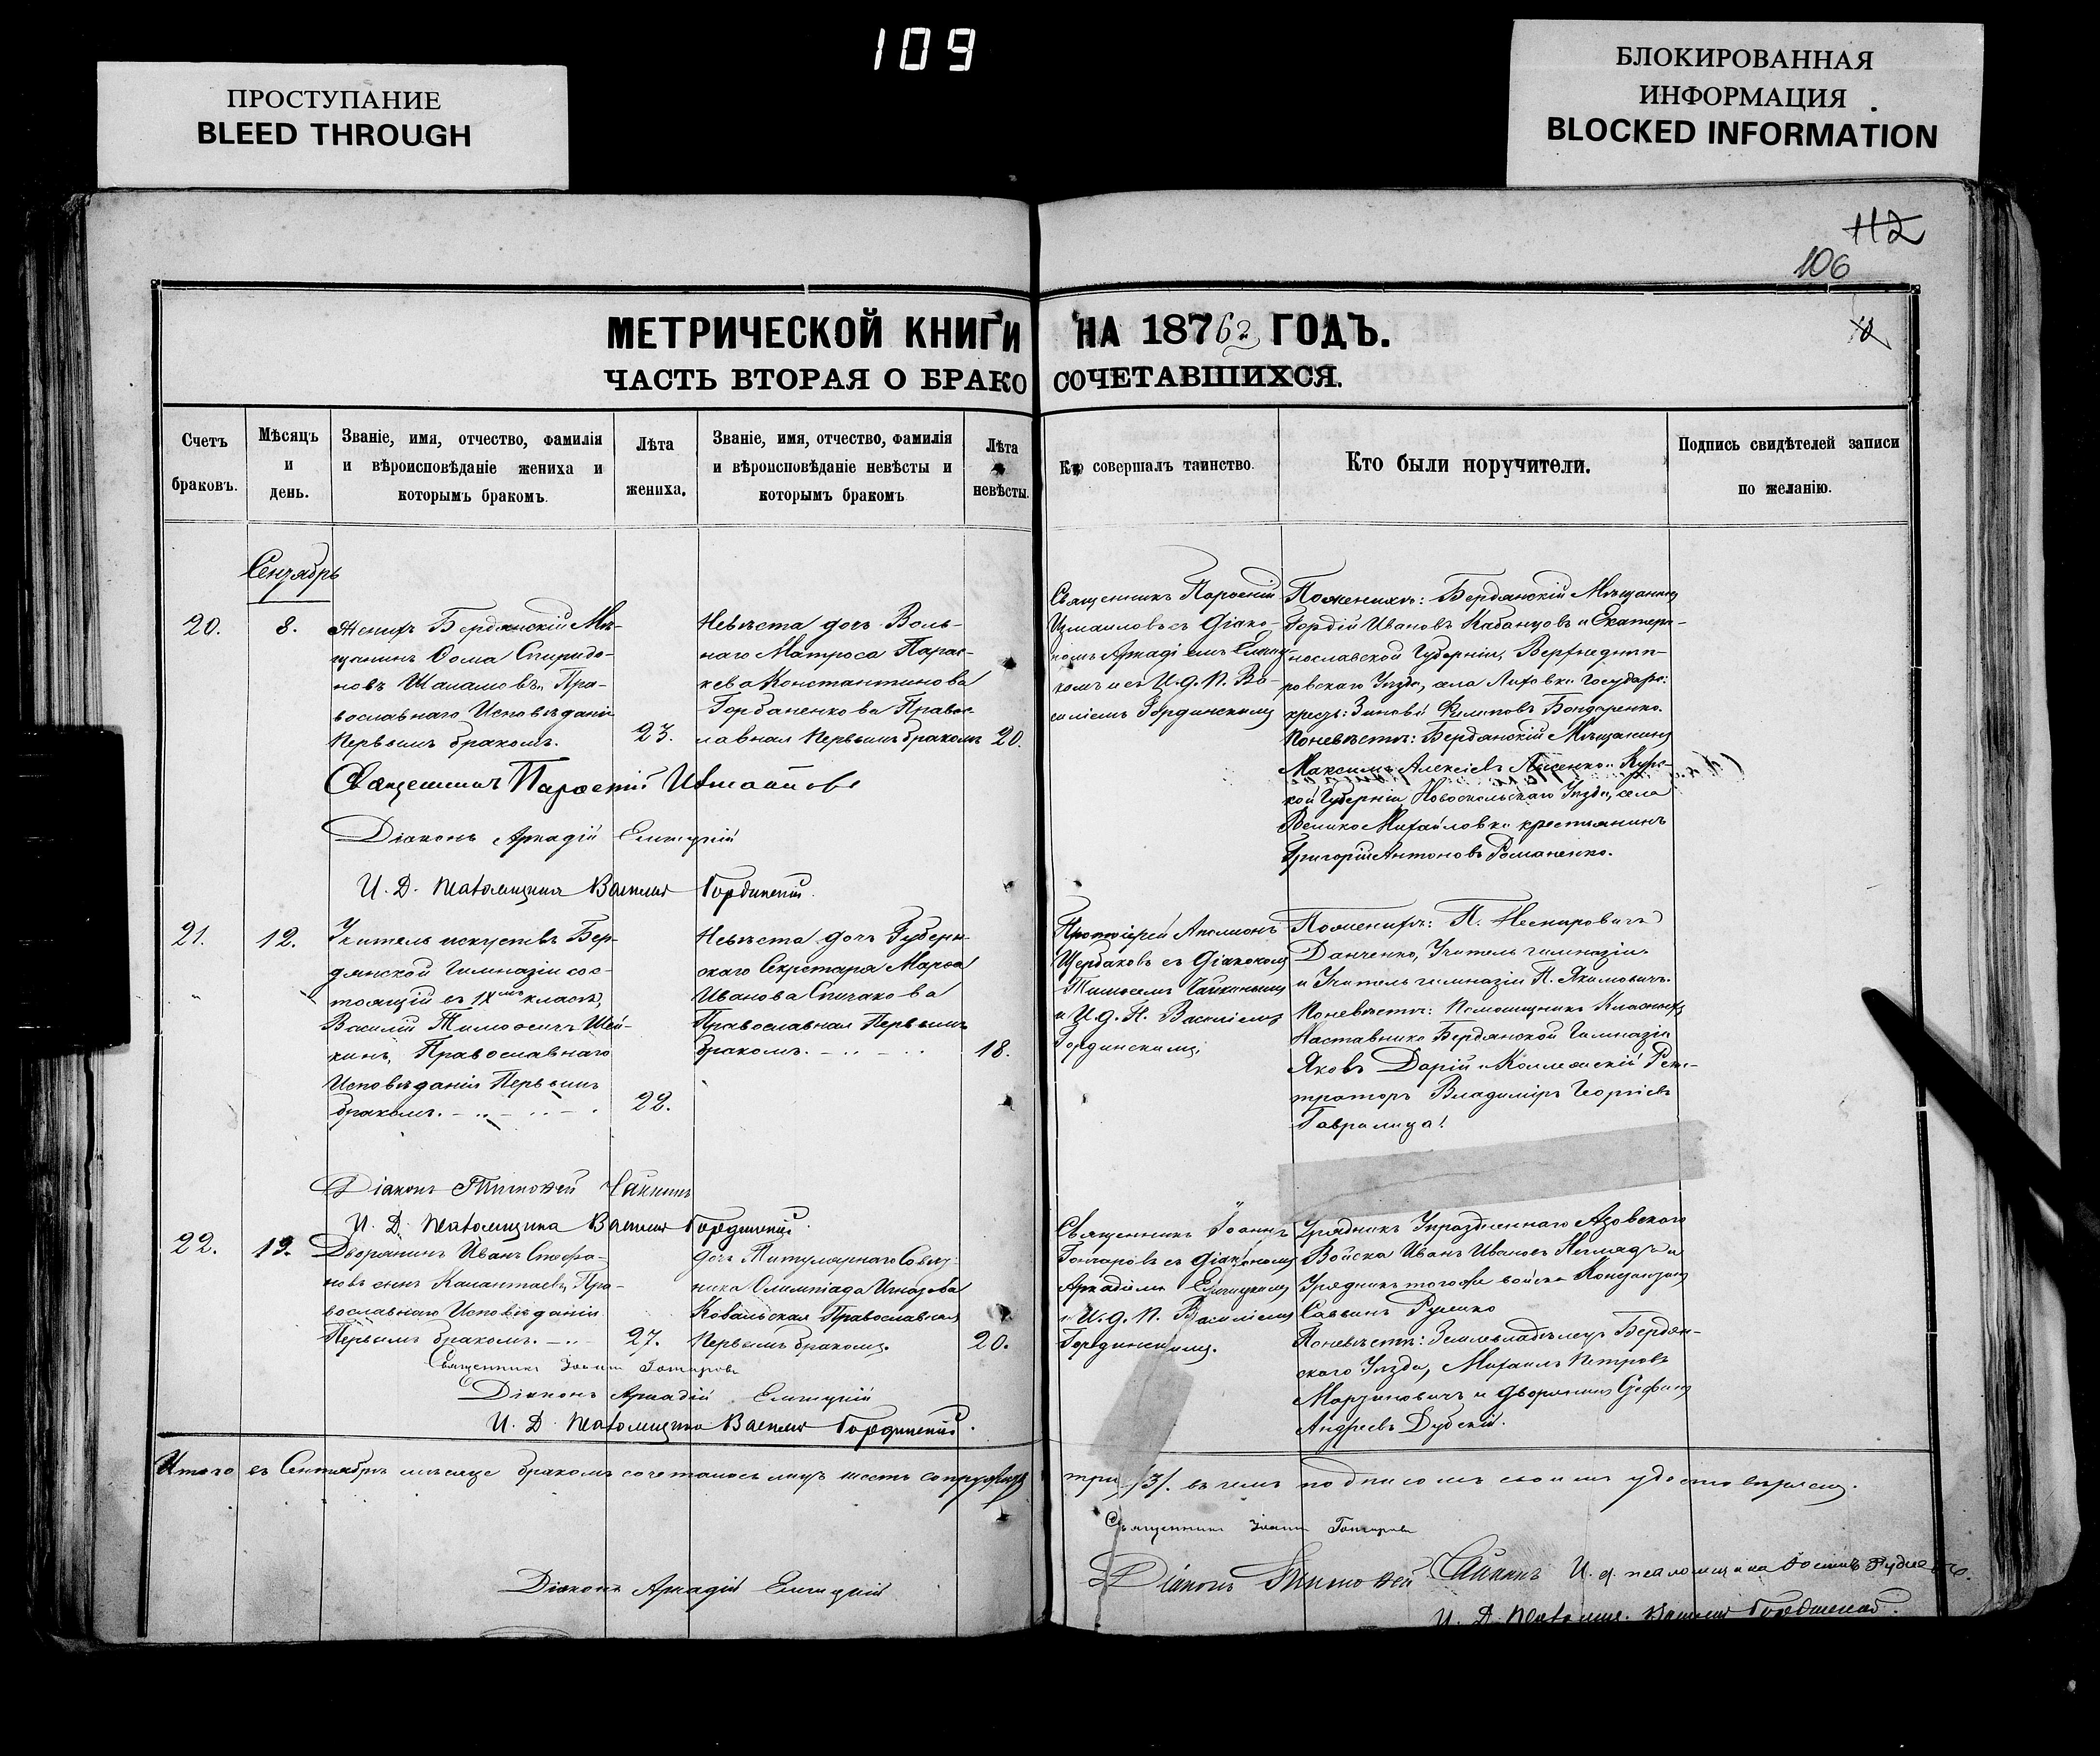 109
ПРОСТУПАНИЕ
BLEED THROUGH
БЛОКИРОВАННАЯ
ИНФОРМАЦИЯ
BLOCKED INFORMATION
112
106
МЕТРИЧЕСКОЙ КНИГИ НА 1876 ГОДЪ.
ЧАСТЬ ВТОРАЯ О БРАКОСОЧЕТАВШИХСЯ.
Счетъ
браковъ.
Мѣсяцъ
и
день.
Званіе, имя, отчество, фамилія
и вѣроисповѣданіе жениха и
которымъ бракомъ.
Лѣта
жениха.
Званіе, имя, отчество, фамилія
и вѣроисповѣданіе невѣсты и
которымъ бракомъ
Лѣта
невѣсты.
Кто совершалъ таинство.
Кто были поручители.
Подпись свидѣтелей записи
по желанію.
Сентябрь
20.
8.
Женихъ Бердянскій Мѣ-
щанинъ Ѳома Спиридо-
новъ Шаламовъ, Пра-
вославнаго Исповѣданія
Первымъ бракомъ.
23.
Невѣста дочь Воль-
наго Матроса Парас-
кева Константинова
Горбаненкова Правос-
лавная Первымъ бракомъ
20.
Священникъ
Измаиловъ съ Діако-
номъ Аркадіемъ
и съ И. д. П. Ва-
силіемъ Гординскимъ
Поженихѣ: Бердянскій Мѣщанинъ
Гордій Ивановъ Кабанцовъ и Екатери-
нославской Губерніи, Верхнеднѣп-
ровскаго Уѣзда, села Лиховки Государ:
крест: Зиновій Филиповъ Бондаренко.
Поневѣстѣ: Бердянскій Мѣщанинъ
Максимъ Алексѣевъ Лисенко и Курс-
кой Губерніи, Новооскольскаго Уѣзда, села
Велико Михайловки крестьянинъ
Григорій Антоновъ Романенко.
Священникъ Измаиловъ
Діаконъ Аркадій
И. Д. Псаломщика Василій Гординскій.
21.
12.
Учитель искуствъ Бер-
дянской Гимназіи сос-
тоящій въ IX классѣ,
Василій Тимоѳеичъ Шей-
кинъ, Православнаго
Исповѣданія Первымъ
бракомъ.
22.
Невѣста дочь Губерн-
скаго Секретаря Марѳа
Иванова Спичакова
Православная Первымъ
бракомъ.
18.
Протоіерей
Щербаковъ съ Діакономъ
Тимоѳеемъ Чайкинымъ
и И. д. П. Василіемъ
Гординскимъ.
Поженихѣ: П. Несторовичъ
Данченко, Учитель гимназіи
и Учитель гимназіи П. Якимовичъ.
Поневѣстѣ: Помощникъ Классныхъ
Наставниковъ Бердянской Гимназіи
Яковъ Дарій и Коллежскій Регис-
траторъ Владиміръ Георгіевъ
Гаврилица!
Діаконъ Тимоѳей Чайкинъ
И. Д. Псаломщика Василій Гординскій.
22.
19.
Дворянинъ Иванъ Стефа-
новъ сынъ Калантаевъ, Пра-
вославнаго Исповѣданія
Первымъ бракомъ.
27.
дочь Титулярнаго Совѣт-
ника Олимпіада
Ковальская Православная
Первымъ бракомъ.
20.
Священникъ Іоаннъ
Гончаровъ съ Діакономъ
Аркадіемъ
и И. д. П. Василіемъ
Гординскимъ.
Урядникъ Упраздненнаго Азовскаго
Войска Иванъ Ивановъ и
Урядникъ тогоже войска
Саввинъ
Поневѣстѣ: Землевладѣлецъ Бердян-
скаго Уѣзда, Михаилъ Петровъ
Марзиновичъ и Дворянинъ
Андреевъ Дубскій.
Священникъ Іоаннъ Гончаровъ
Діаконъ Аркадій
И. Д. Псаломщика Василій Гординскій.
Итого въ Сентябрѣ мѣсяцѣ бракомъ сочеталось лицъ шесть супружествъ три /3/. въ чемъ подписомъ своимъ удостовѣряемъ.
Священникъ Іоаннъ Гончаровъ
Діаконъ Аркадій
Діаконъ Тимоѳей Чайкинъ И. д. псаломщика
И. Д. Псаломщ. Василій Гординскій.